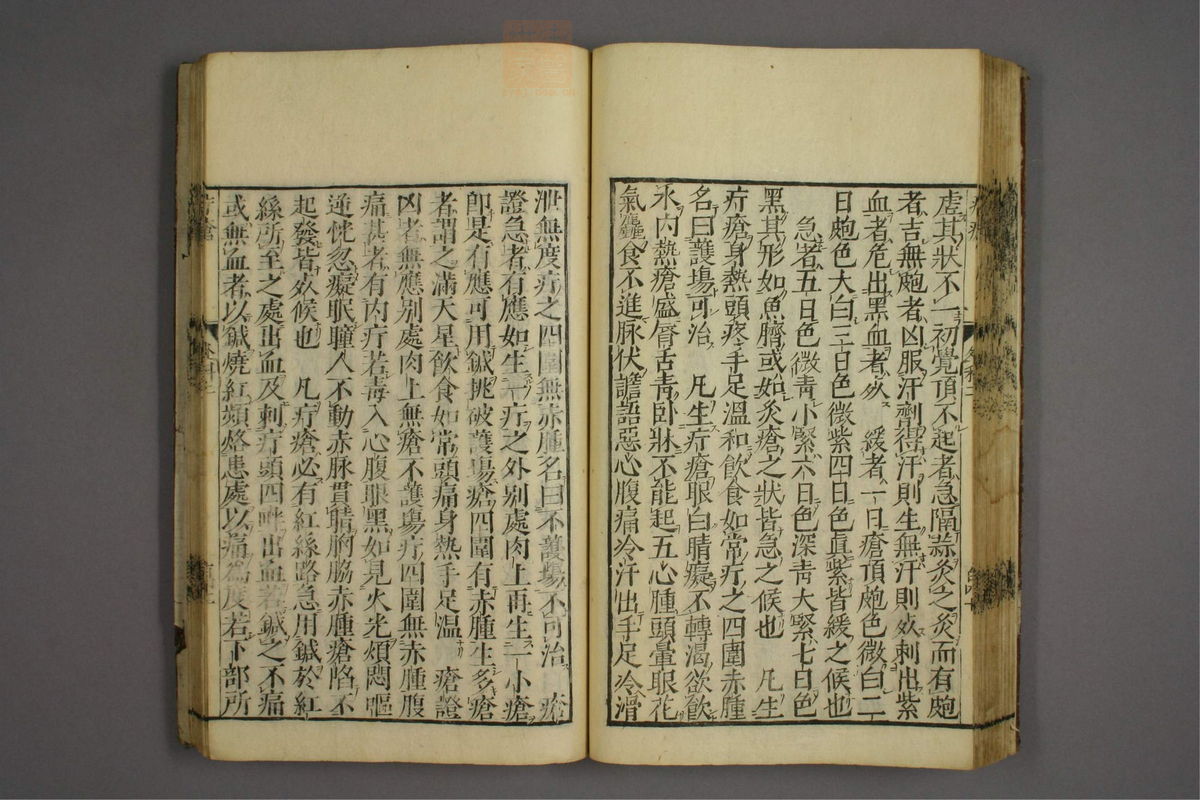 虐其狀不一初覺頂不起者急隔蒜灸之灸而有皰
者吉無皰者凶服汗劑得汗則生無汗則死刺出紫
血者危出黑血者死　緩者一日瘡頂皰色微白二
日皰色大白三日色微紫四日色眞紫皆緩之候也
急者五日色微靑小緊六日色深靑大緊七日色
黑其形如魚臍或如灸瘡之狀皆急之候也　凡生
疔瘡身熱頭疼手足溫和飮食如常疔之四圍赤腫
名曰護場可治　凡生疔瘡眼白睛癡不轉渴欲飮
水內熱瘡盛脣舌靑卧牀不能起五心腫頭暈眼花
氣麤食不進脉伏譫語惡心腹痛冷汗出手足冷滑
泄無度疔之四圍無赤腫名曰不護場不可治　瘡
證急者有應如生一疔之外别處肉上再生一小瘡
卽是有應可用鍼挑破護場瘡四圍有赤腫生多瘡
者謂之滿天星飮食如常頭痛身熱手足溫　瘡證
凶者無應别處肉上無瘡不護場疔四圍無赤腫腹
痛甚者有肉疔若毒入心腹眼黑如見火光煩悶嘔
逆恍忽癡眠瞳人不動赤脉貫睛胸脇赤腫瘡陷不
起發皆死候也　凡疔瘡必有紅絲路急用鍼於紅
絲所至之處出血及刺疔頭四畔出血若鍼之不痛
或無血者以鍼燒紅頻烙患處以痛爲度若下部所